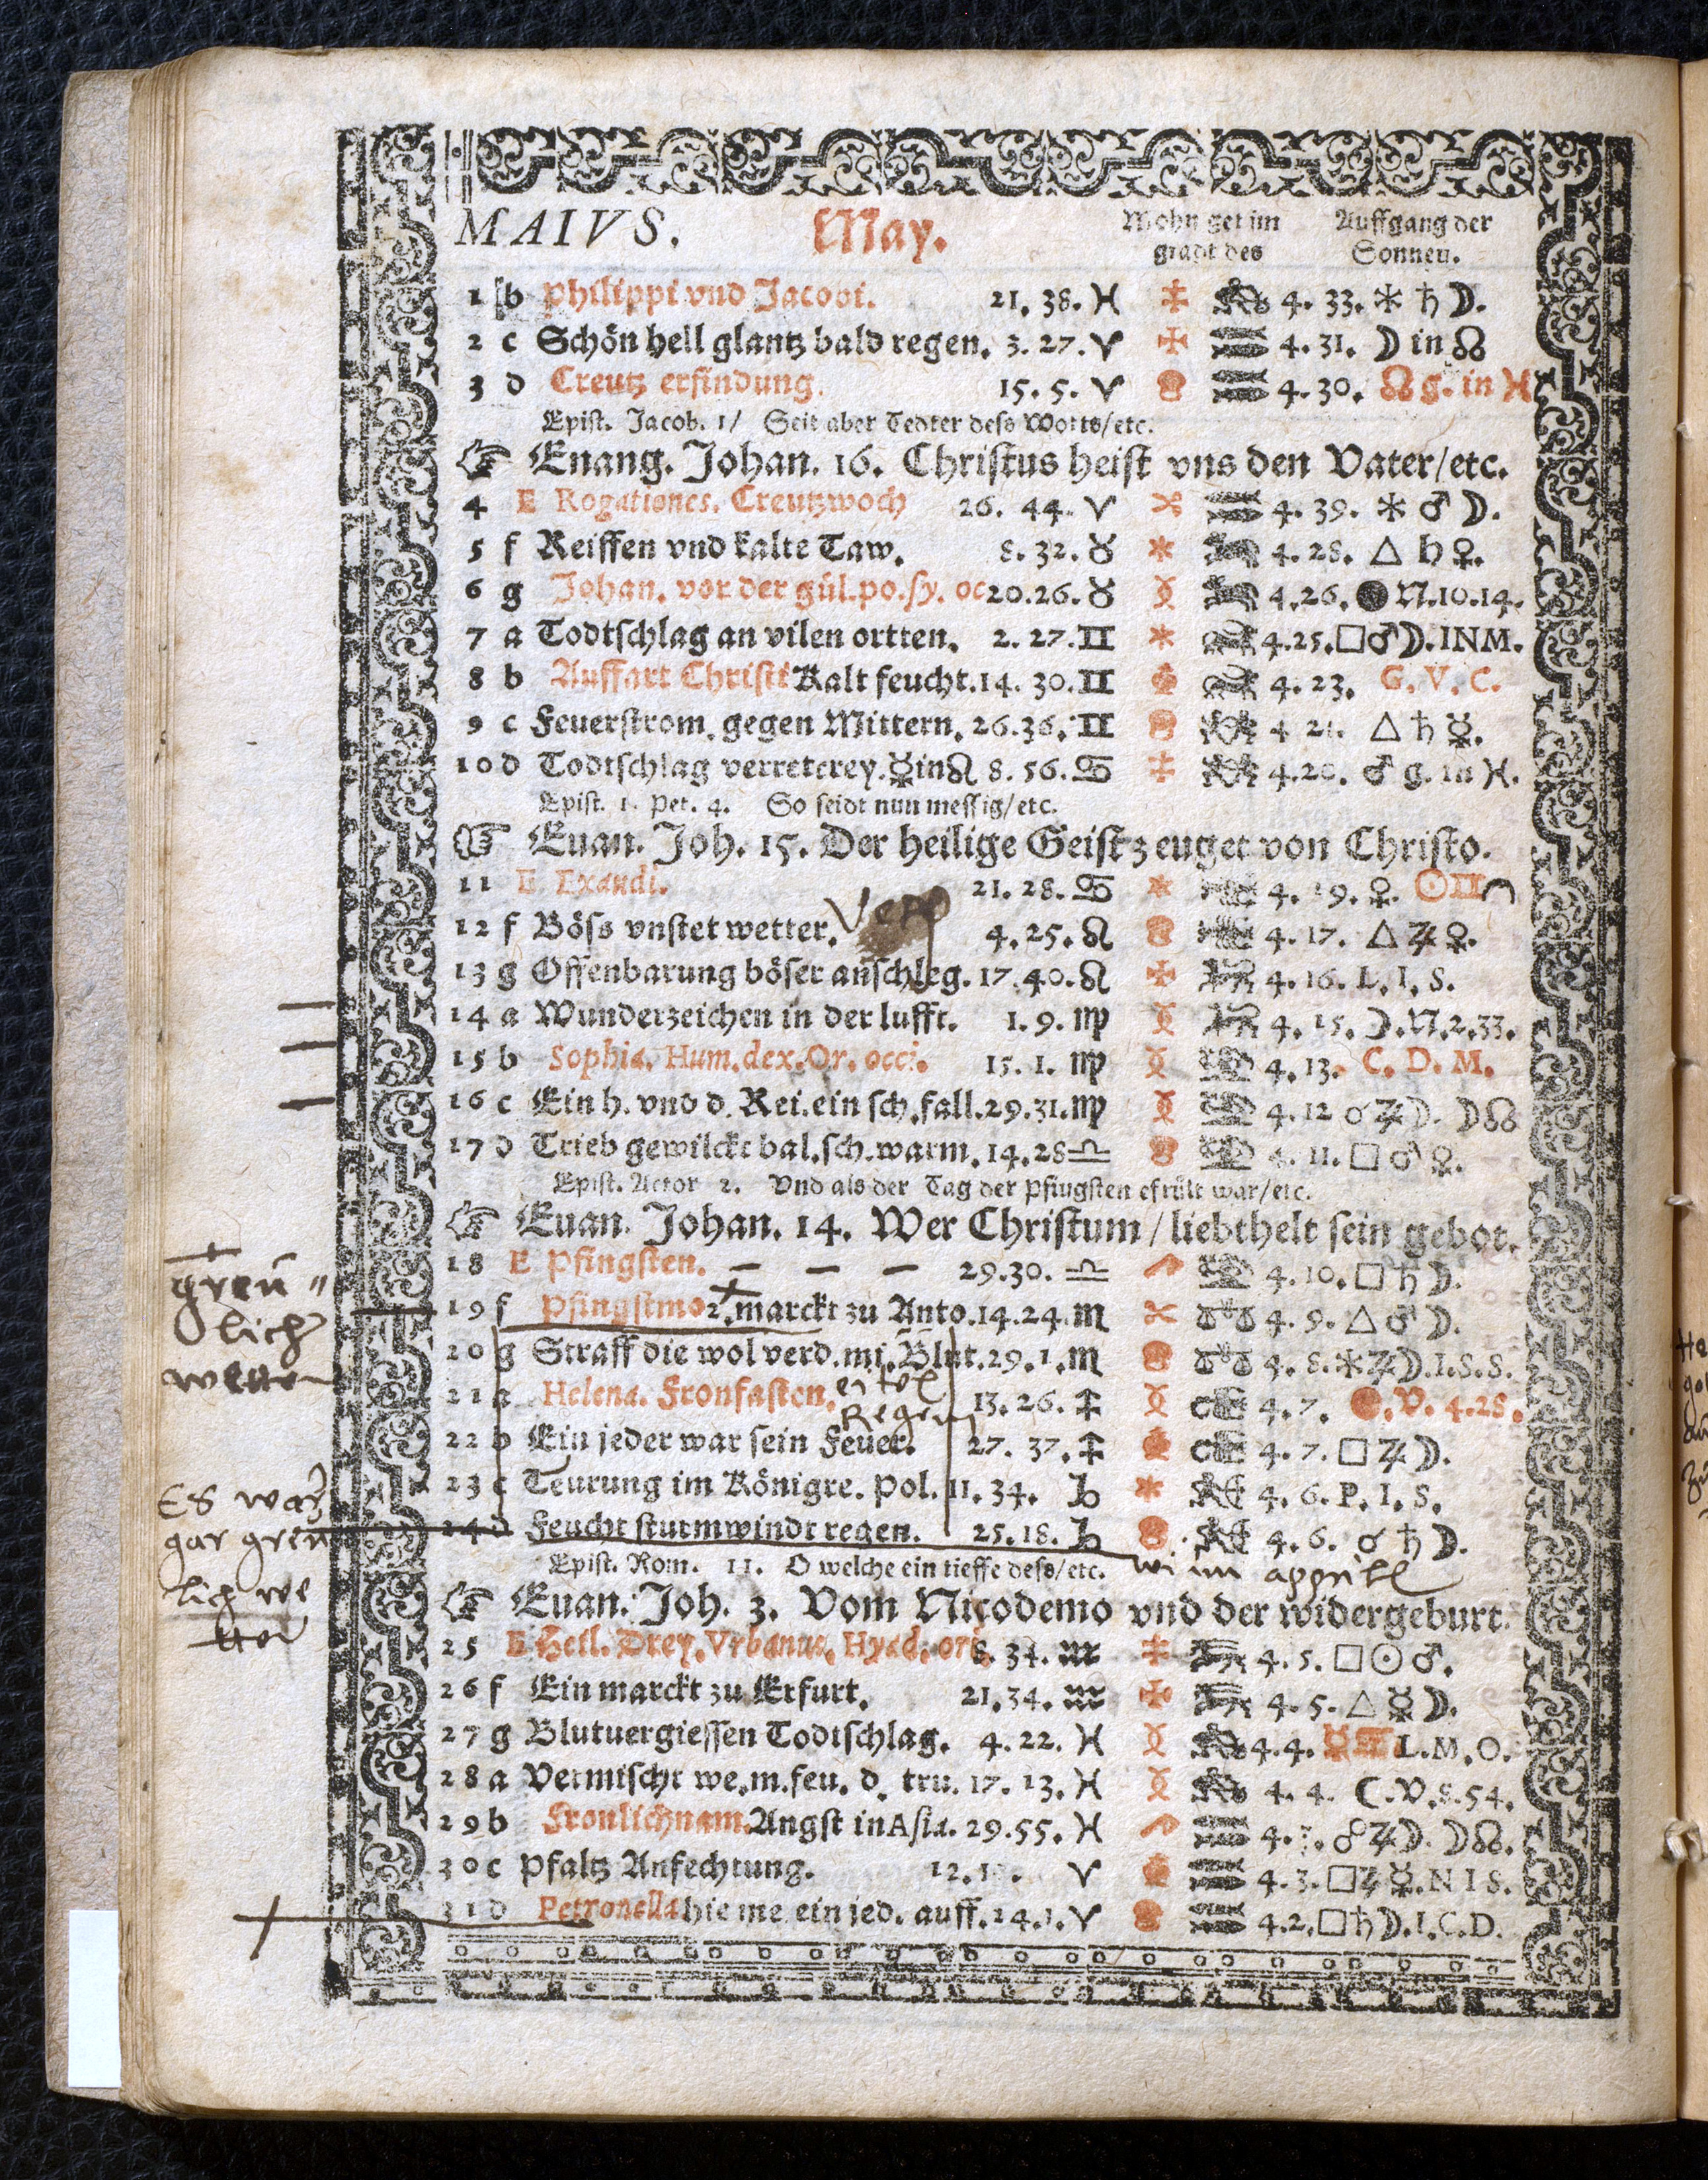 MAIVS. May. Mohn get im gradt des Auffgang der Sonnen.
1 b Philippi vnd Jacobi. 21. 38. ♓ 4. 33. ⚹ ♄ ☽.
2 c Schön hell glantz bald regen. 3. 27. ♈ 4. 31. ☽ in ☊
3 d Creutz erfindung. 15. 5. ♈ 4. 30. ☊ g. in ♓
Epist. Jacob. 1/ Seit aber Tedter dess Worts/etc.
☞ Enang. Johan. 16. Christus heist vns den Vater/etc.
4 E Rogationes. Creutzwoch 26. 44. ♈ 4. 39. ⚹ ♂ ☽.
5 f Reiffen vnd kalte Taw. 8. 32. ♉ 4. 28. △ ♄ ♀.
6 g Johan. vor der gül. po. sy. oc 20. 26. ♉ 4. 26. ● N. 10. 14.
7 a Todtschlag an vilen ortten. 2. 27. ♊ 4. 25. □ ♂ ☽. INM.
8 b Auffart Christi Kalt feucht. 14. 30. ♊ 4. 23. G. V. C.
9 c Feuerstrom. gegen Mittern. 26. 36. ♊ 4 21. △ ♄ ☿.
10 d Todtschlag verreterey. ☿ in ♌ 8. 56. ♋ 4. 20. ♂ g. in ♓.
Epist. 1. Pet. 4. So seidt nun messig/etc.
☞ Euan. Joh. 15. Der heilige Geist zeuget von Christo.
11 E Exaudi. 21. 28. ♋ 4. 19. ♀. ☉ ♊
12 f Böss vnstet wetter. 4. 25. ♌ 4. 17. △ ♃ ♀.
13 g Offenbarung böser anschleg. 17. 40. ♌ 4. 16. L. I. S.
14 a Wunderzeichen in der lufft. 1. 9. ♍ 4. 15. ☽. N. 2. 33.
15 b Sophia. Hum. dex. Or. occi. 15. 1. ♍ 4. 13. C. D. M.
16 c Ein h. vnd d. Rei. ein sch. fall. 29. 31. ♍ 4. 12 ☌ ♃ ☽. ☽ ☊
17 d Trieb gewilckt bal. sch. warm. 14. 28 ♎ 4. 11. □ ♂ ♀.
Epist. Actor 2. Vnd als der Tag der Pfingsten erfült war/etc.
☞ Euan. Johan. 14. Wer Christum / liebt helt sein gebot.
18 E Pfingsten. — — — 29. 30. ♎ 4. 10. □ ♄ ☽.
greü„
lich
wetter
19 f Pfingstmo 2. marckt zu Anto. 14. 24. ♏ 4. 9. △ ♂ ☽.
20 g Straff die wol verd. mi. Blut. 29. 1. ♏ 4. 8. ⚹ ♃ ☽. I. S. S.
21 a Helena. Fronfasten. 13. 26. ♐ 4. 7. V. 4. 28.
eitel
Regen
22 b Ein jeder war sein Feuer. 27. 37. ♐ 4. 7. □ ♃ ☽.
23 c Teurung im Königre. Pol. 11. 34. ♑ 4. 6. P. I. S.
24 d Feucht sturmwindt regen. 25. 18. ♑ 4. 6. ☌ ♄ ☽.
Es war
gar greu
lich we
tter
Epist. Rom. 11. O welche ein tieffe dess/etc.
wi im apprill
☞ Euan. Joh. 3. Vom Nicodemo vnd der widergeburt.
25 E Heil. Drey. Vrbanus. Hyad. ori. 8. 34. ♒ 4. 5. □ ☉ ♂.
26 f Ein marckt zu Erfurt. 21. 34. ♒ 4. 5. △ ☿ ☽.
27 g Blutuergiessen Todtschlag. 4. 22. ♓ 4. 4. ☿ ♋ L. M. O.
28 a Vermischt we. m. feu. d. tru. 17. 13. ♓ 4. 4. ☾. V. 8. 54.
29 b Fronlichnam. Angst in Asia. 29. 55. ♓ 4. ☍ ♃ ☽. ☽ ☊.
30 c Pfaltz Anfechtung. 12. ♈ 4. 3. □ ♃ ☿. N I S.
31 d Petronella hie me ein jed. auff. 24. 1. ♈ 4. 2. □ ♄ ☽. I. C. D.